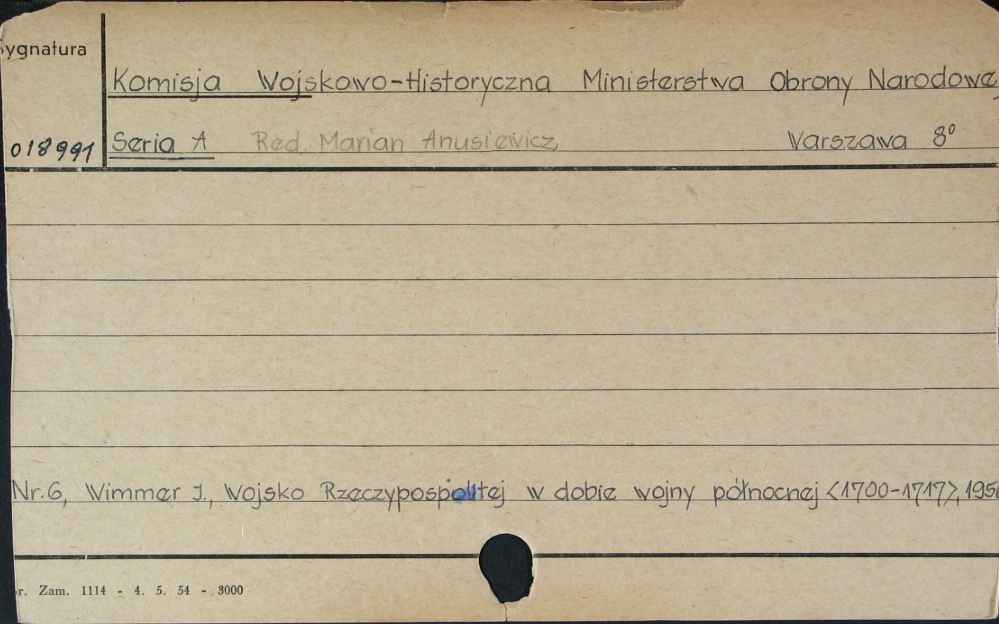 ygnatura
Komisja Wojskowo-Historyczna Ministerstwa Obrony Narodowe
018991 Seria A Red. Marian Anusiewicz, Warszawa 8°
Nr.6, Wimmer J., Wojsko Rzeczypospolitej w dobie wojny północnej <1700-1717>, 195
r. Zam. 1114 - 4. 5. 54 - 3000